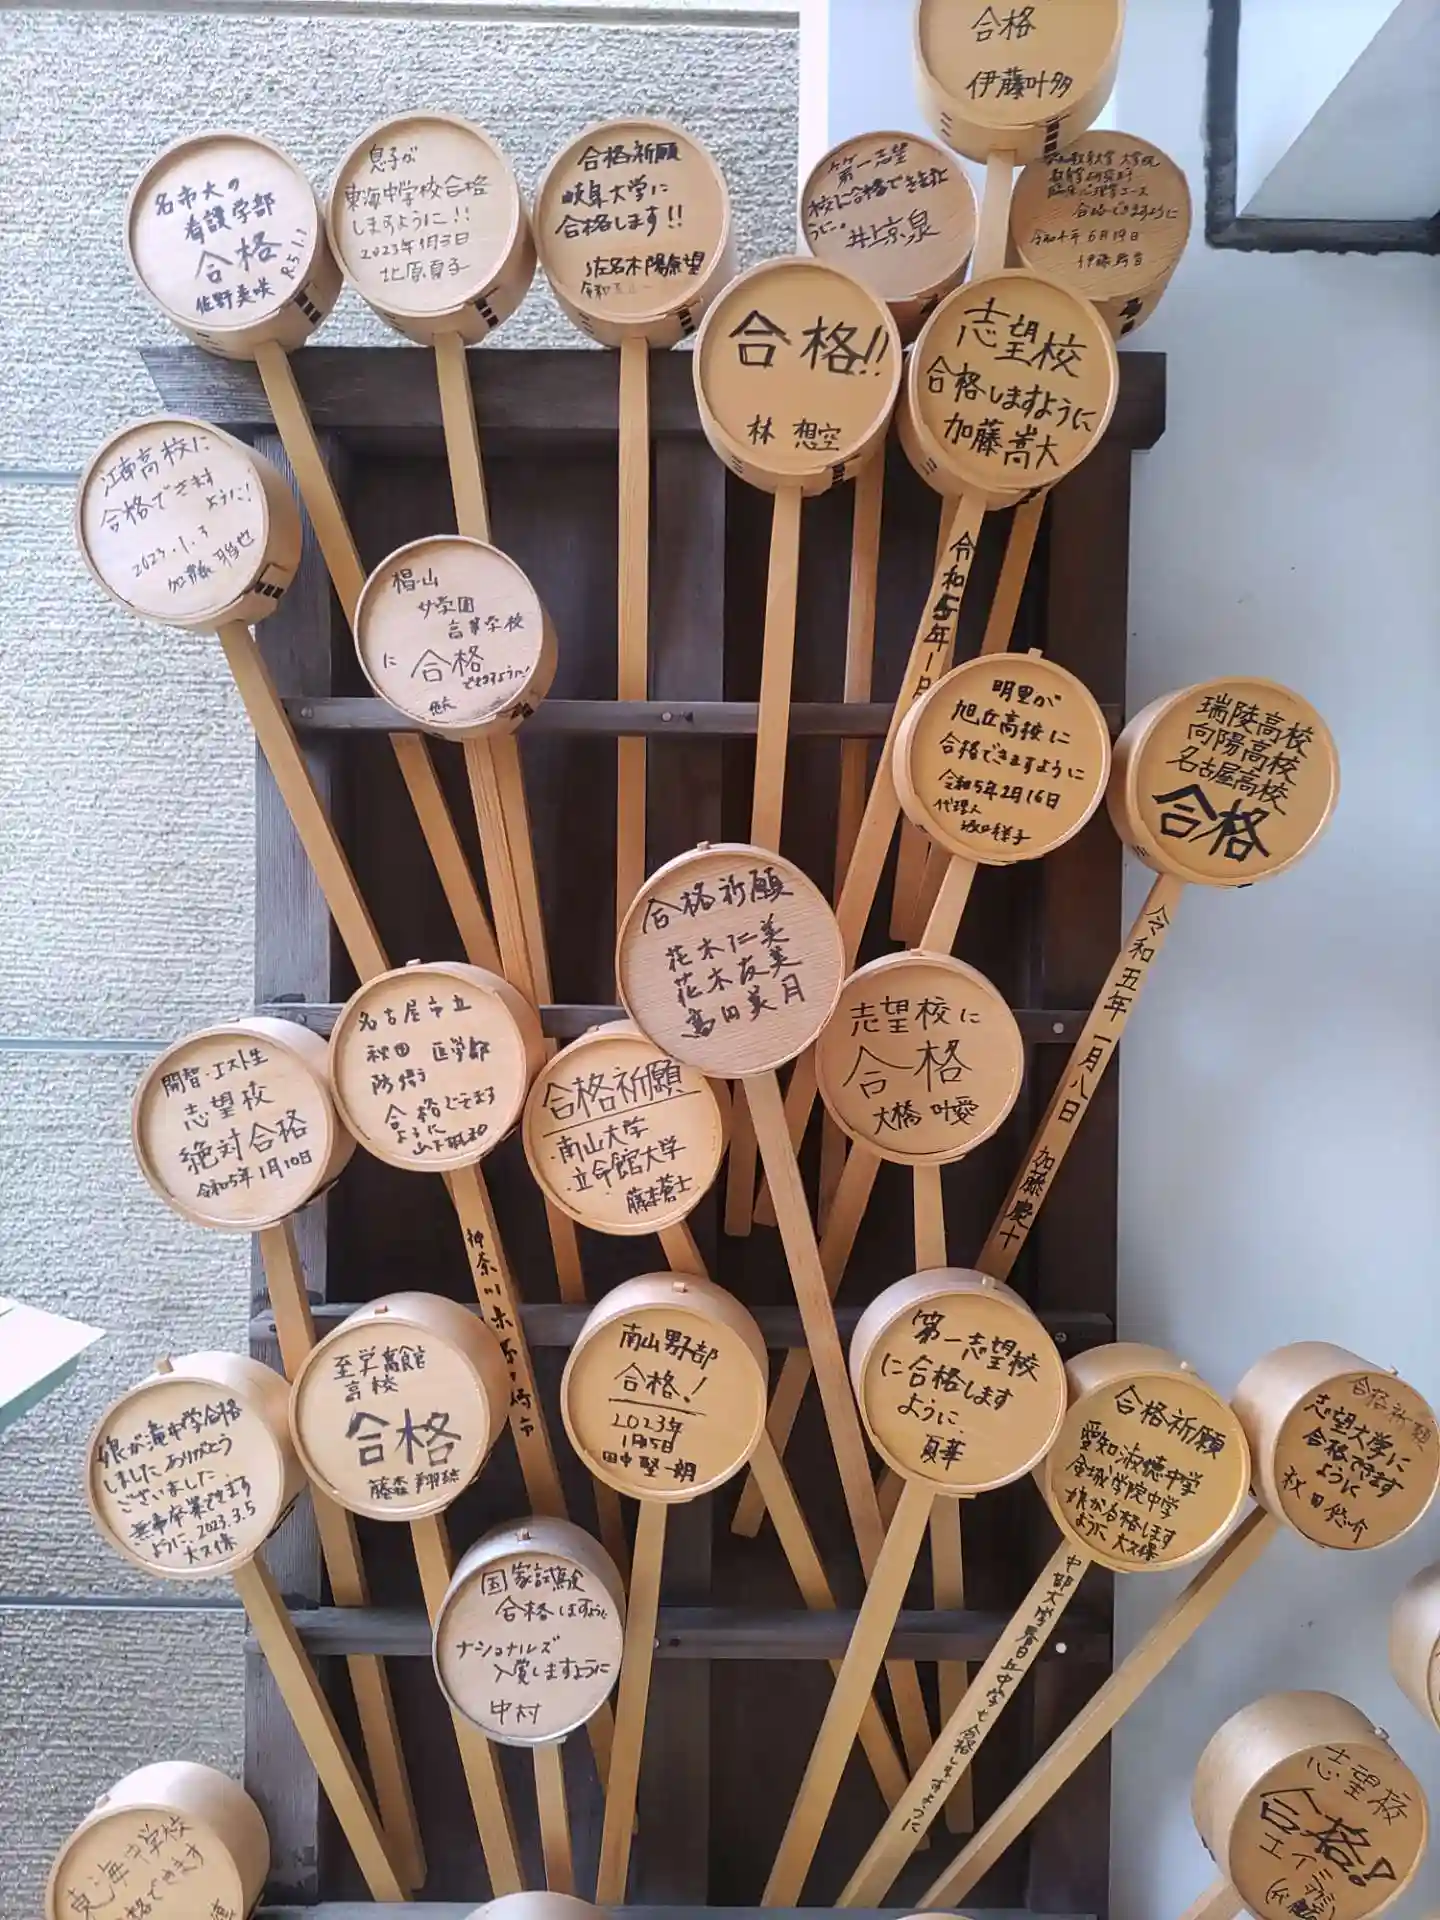 合格
伊藤叶多
名市大の
看護学部
合格
R5.1.1
佐野美咲
息子が
東海中学校合格
しますように!!
2023年1月3日
北原貢子
合格祈願
岐阜大学に
合格します!!
佐名木陽奈望
第一志望
校に合格できます
うに。井上京泉
大学 大学院
合格できますように
6月19日
伊藤
合格!!
林 想空
志望校
合格しますように
加藤嵩大
令和5年一月
江南高校に
合格できます
ように!
2023.1.3
加藤 雅也
椙山
女学園
高等学校
に 合格
できますように!
明里が
旭丘高校に
合格できますように
令和5年2月16日
代理人
坂口祥子
瑞陵高校
向陽高校
名古屋高校
合格
令和五年一月八日 加藤慶十
合格祈願
花木仁美
花木友美
高田美月
志望校に
合格
大橋叶愛
開智・エスト生
志望校
絶対合格
令和5年1月10日
名古屋市立
秋田 医学部
防衛
合格できます
ように
神奈川県
市
合格祈願
・南山大学
・立命館大学
藤本蒼士
至学館
高校
合格
藤森翔
南山男子部
合格!
2023年
1月5日
田中堅一朗
第一志望校
に合格します
ように
夏華
合格祈願
愛知淑徳中学
金城学院中学
娘が合格します
ように 大久保
中部大学春日丘中学も合格しますように
合格祈願
志望大学に
合格できます
ように
秋田悠介
娘が滝中学合格
しました ありがとう
ございました
無事卒業できます
ように。2023.3.5
大久保
国家試験
合格しますように
ナショナルズ
入賞しますように
中村
志望校
合格!
エイミ
東海中学校
合格できます